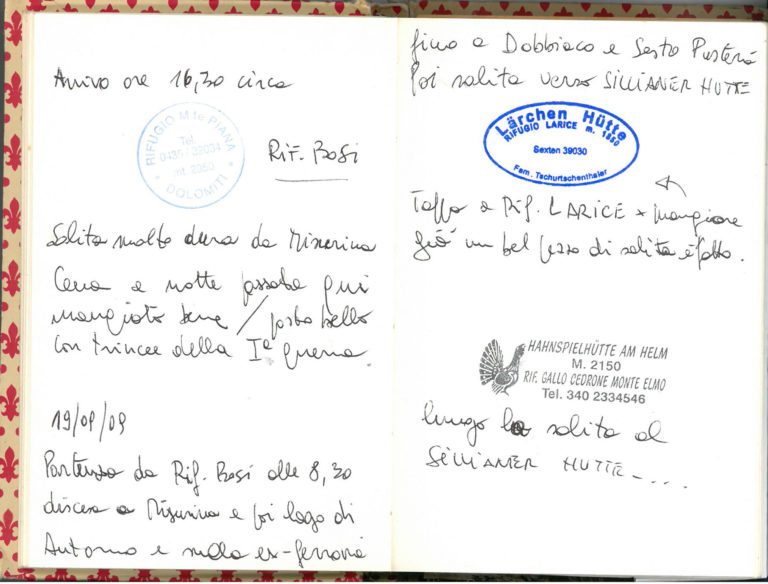 Arrivo ore 16,30 circa
RIFUGIO M.te PIANA
Tel.
0435/32034
mt. 2250
DOLOMITI
RIF. BOSI
Salita molto dura da Misurina
Cena e notte passata qui
mangiato bene / posto bello
con trincee della Iª guerra.
19/08/09
Partenza da Rif. Bosi alle 8,30
discesa a Misurina e poi lago di
Antorno e sulla ex-ferrovia
fino a Dobbiaco e Sesto Pusteria
Poi salita verso SILLIANER HUTTE
Lärchen Hütte
RIFUGIO LARICE m. 1850
Sexten 39030
Fam. Tschurtschenthaler
Tappa a Rif. LARICE x mangiare
già un bel pezzo di salita è fatto.
HAHNSPIELHÜTTE AM HELM
M. 2150
RIF. GALLO CEDRONE MONTE ELMO
Tel. 340 2334546
lungo la salita al
SILLIANER HUTTE - ....